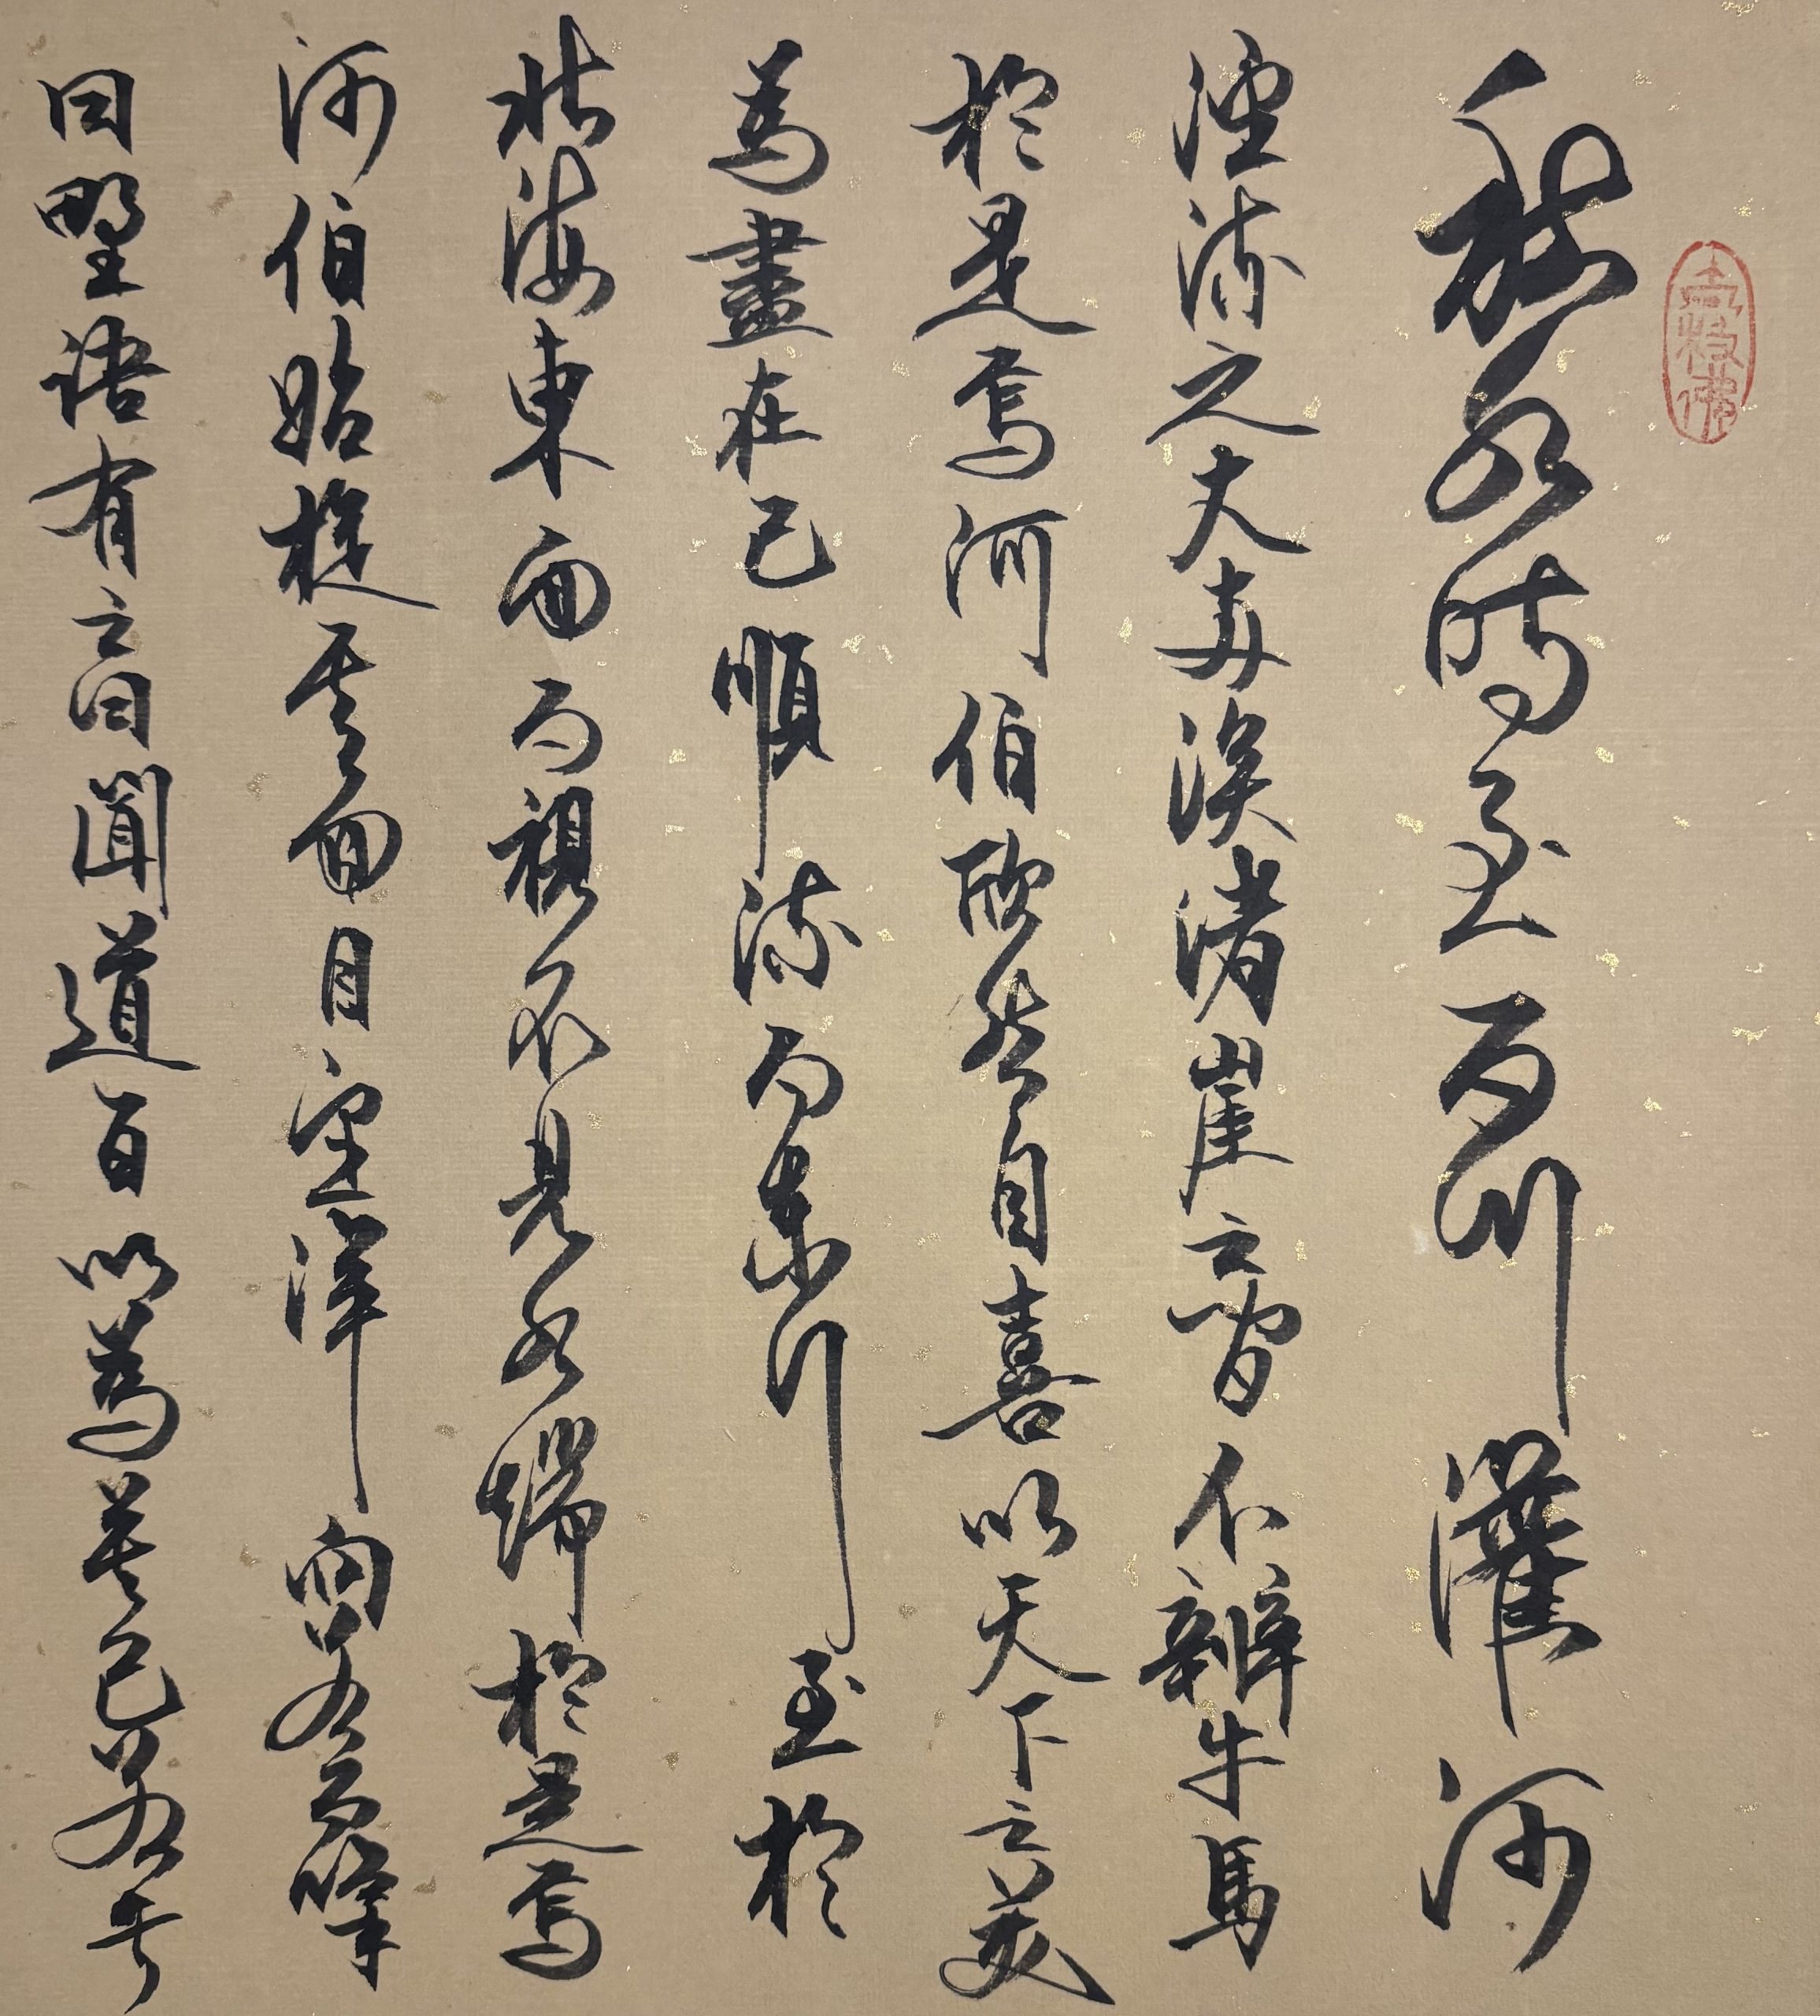 秋水時至百川灌河
涇流之大兩涘渚崖之間不辨牛馬
於是焉河伯欣然自喜以天下之美
為盡在己順流而東行至於
北海東面而視不見水端於是焉
河伯始旋其面目望洋向若而嘆
曰野語有之曰聞道百以為莫己若者